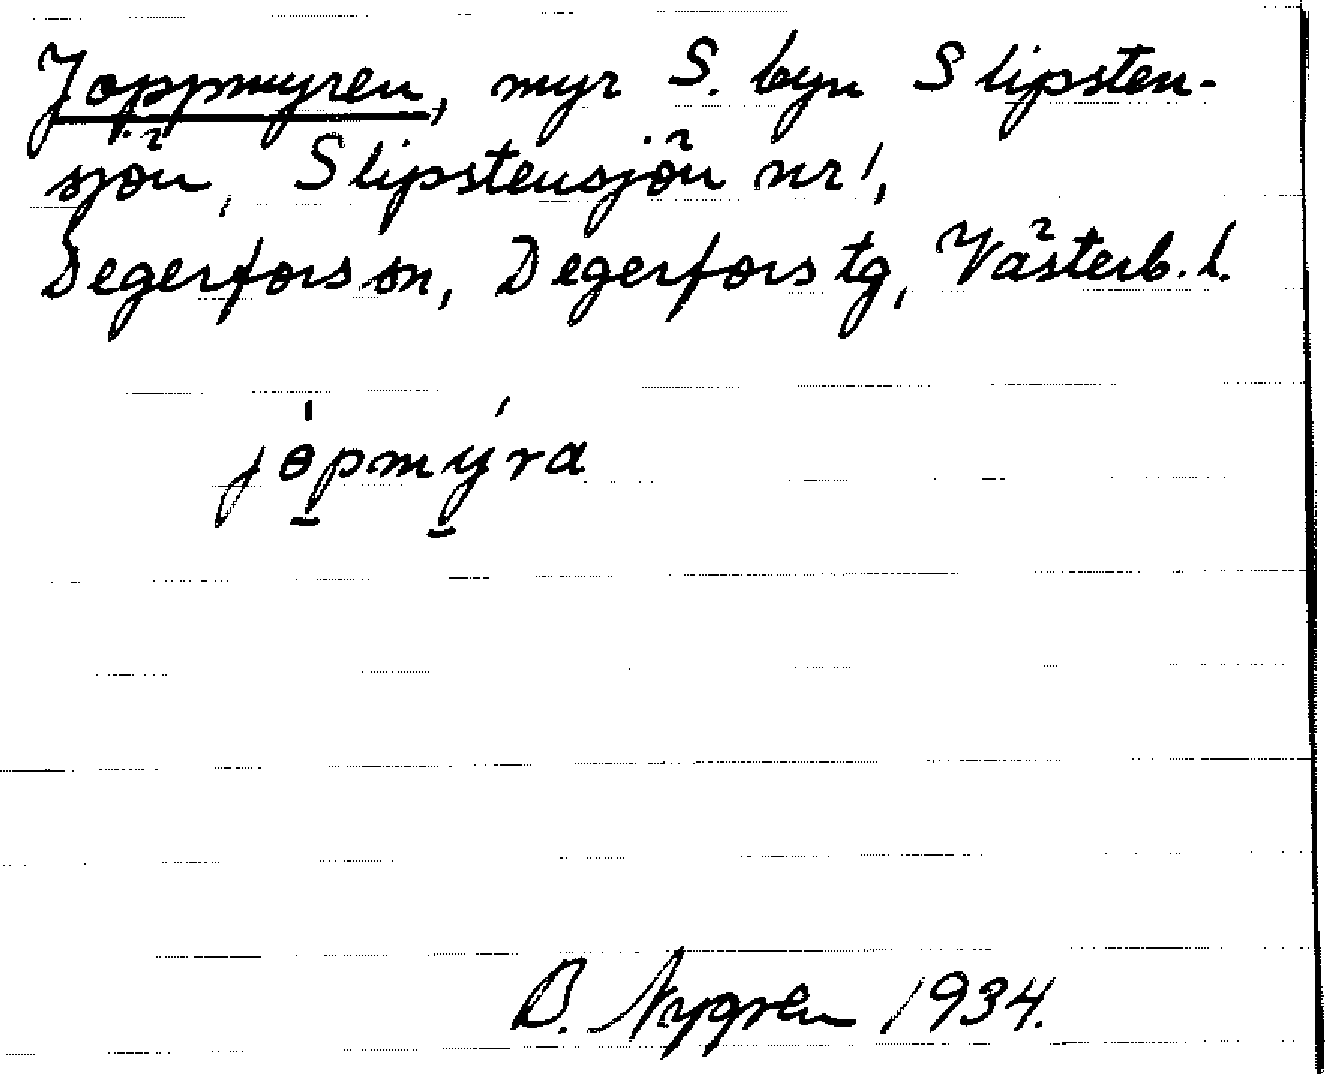 Joppmyren, myr S. byn Slipsten-
sjön, Slipstensjön nr 1,
Degerfors sn, Degerfors tg, Västerb. l.
jɵpmýra
B. Nygren 1934.